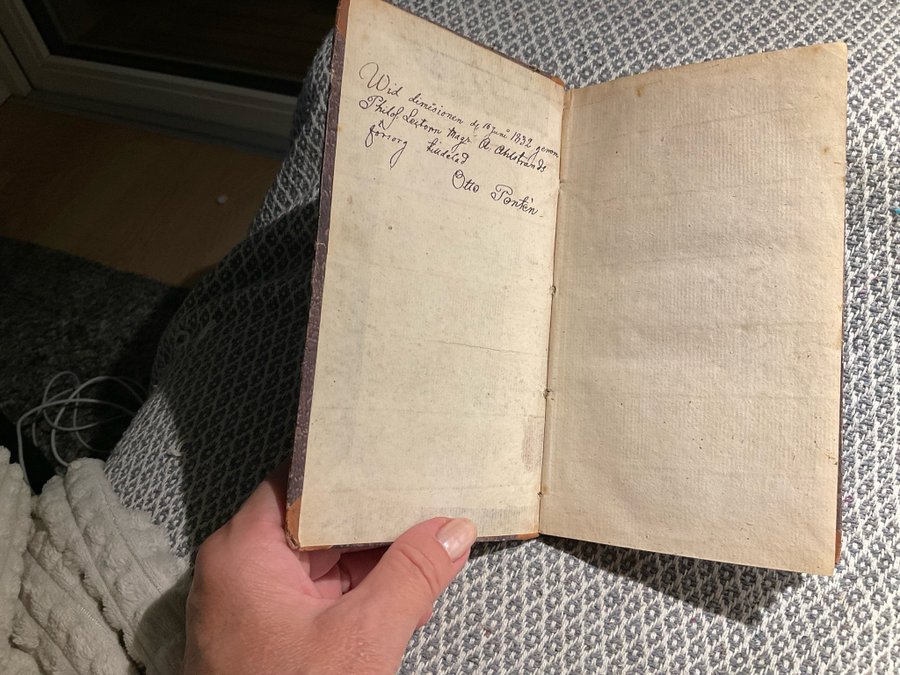 Wid dimisionen d. 16 Juni 1832 genom
Philos. Lector Mag. A. Ahlstrands
försorg tilldelad
Otto Pontén.